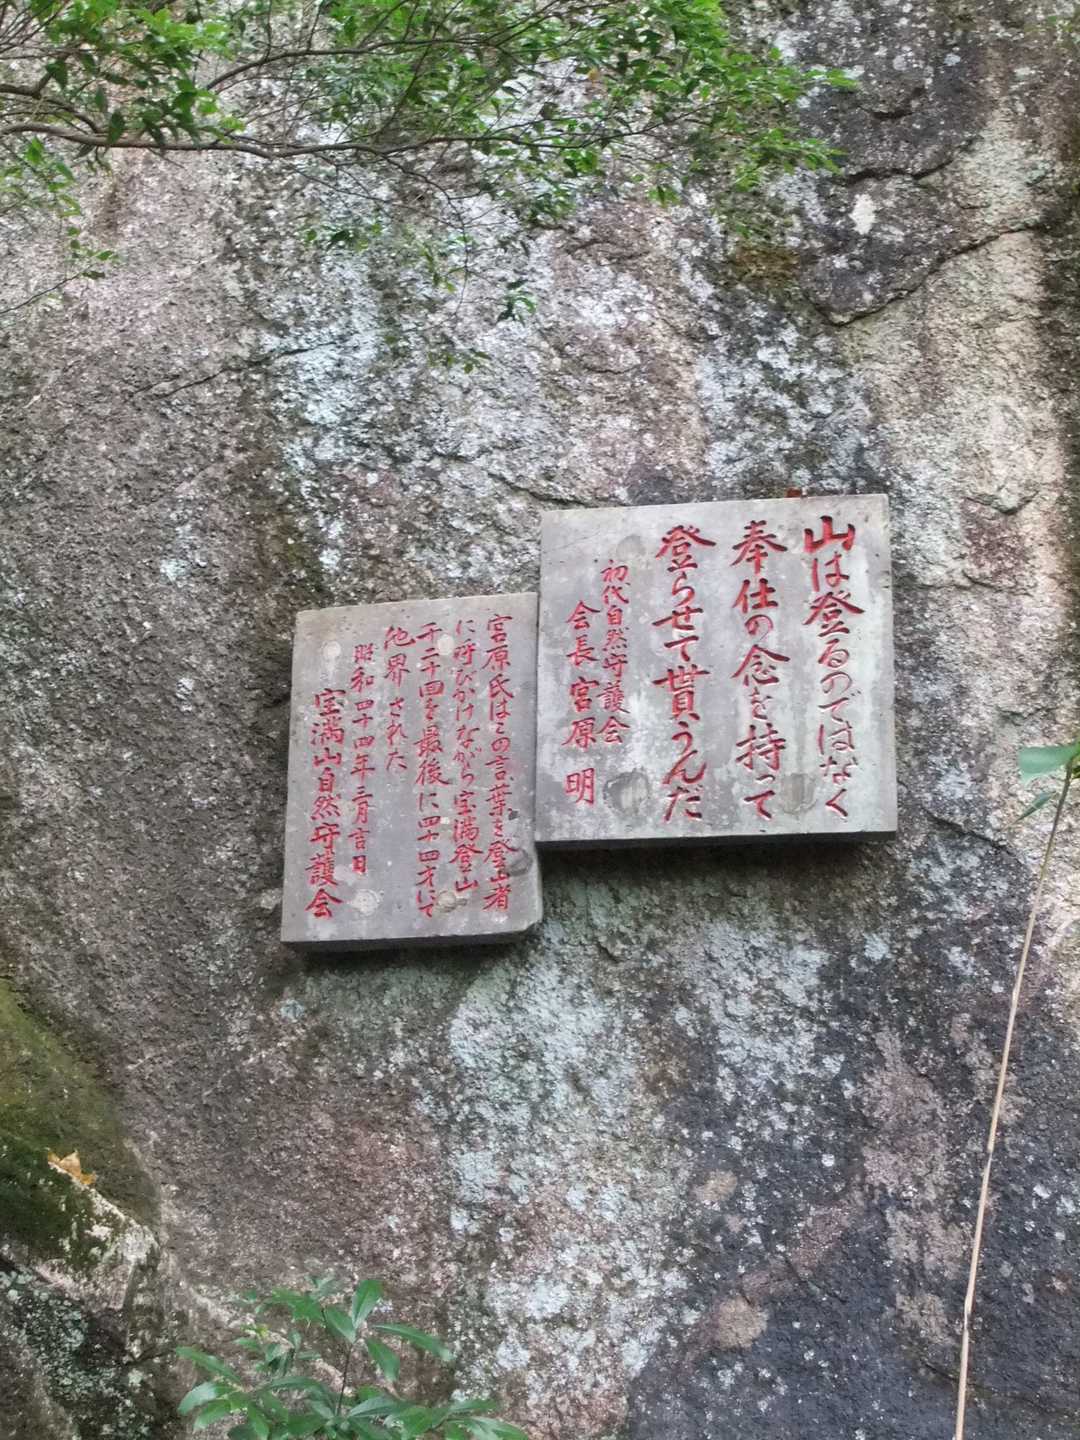 山は登るのではなく
奉仕の念を持って
登らせて貰うんだ
初代自然守護会
会長 宮原 明
宮原氏はこの言葉を登山者
に呼びかけながら宝満登山
千二十四回を最後に四十四才にて
他界された
昭和四十四年三月吉日
宝満山自然守護会